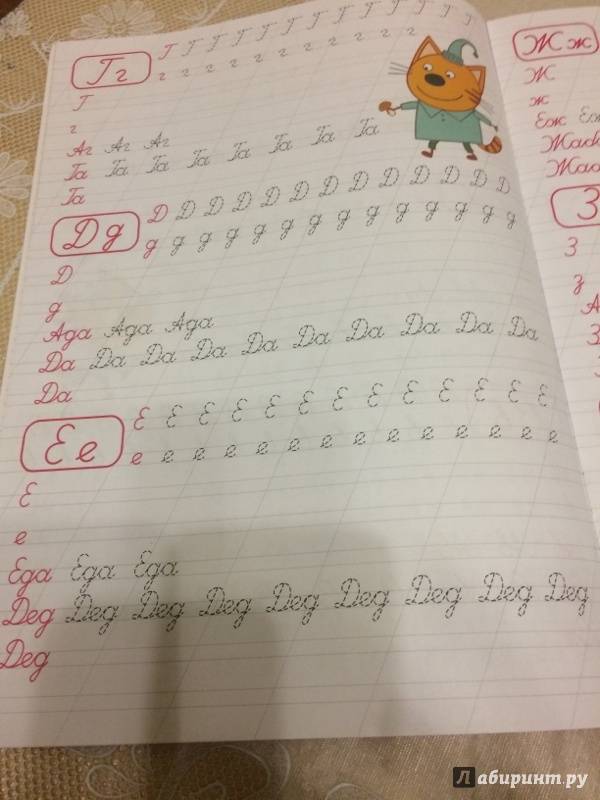 Г г
Г Г Г Г Г Г Г Г Г Г Г Г Г
г г г г г г г г г г г
Г
г
Аг Аг Аг
Га Га Га Га Га Га Га Га
Га
Д д
Д Д Д Д Д Д Д Д Д Д Д Д Д
д д д д д д д д д д д д д д
Д
д
Ада Ада Ада
Да Да Да Да Да Да Да Да Да Да
Да
Е е
Е Е Е Е Е Е Е Е Е Е Е Е Е
е е е е е е е е е е е е е е
Е
е
Еда Еда Еда
Дед Дед Дед Дед Дед Дед Дед Дед Дед
Дед
Ж ж
Ж
ж
Еж
З
З
з
Лабиринт.ру